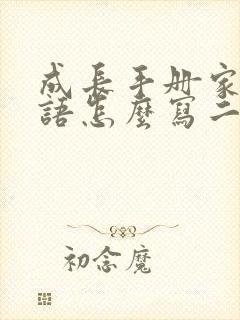 成長手册家
語怎麼寫二
初念魔